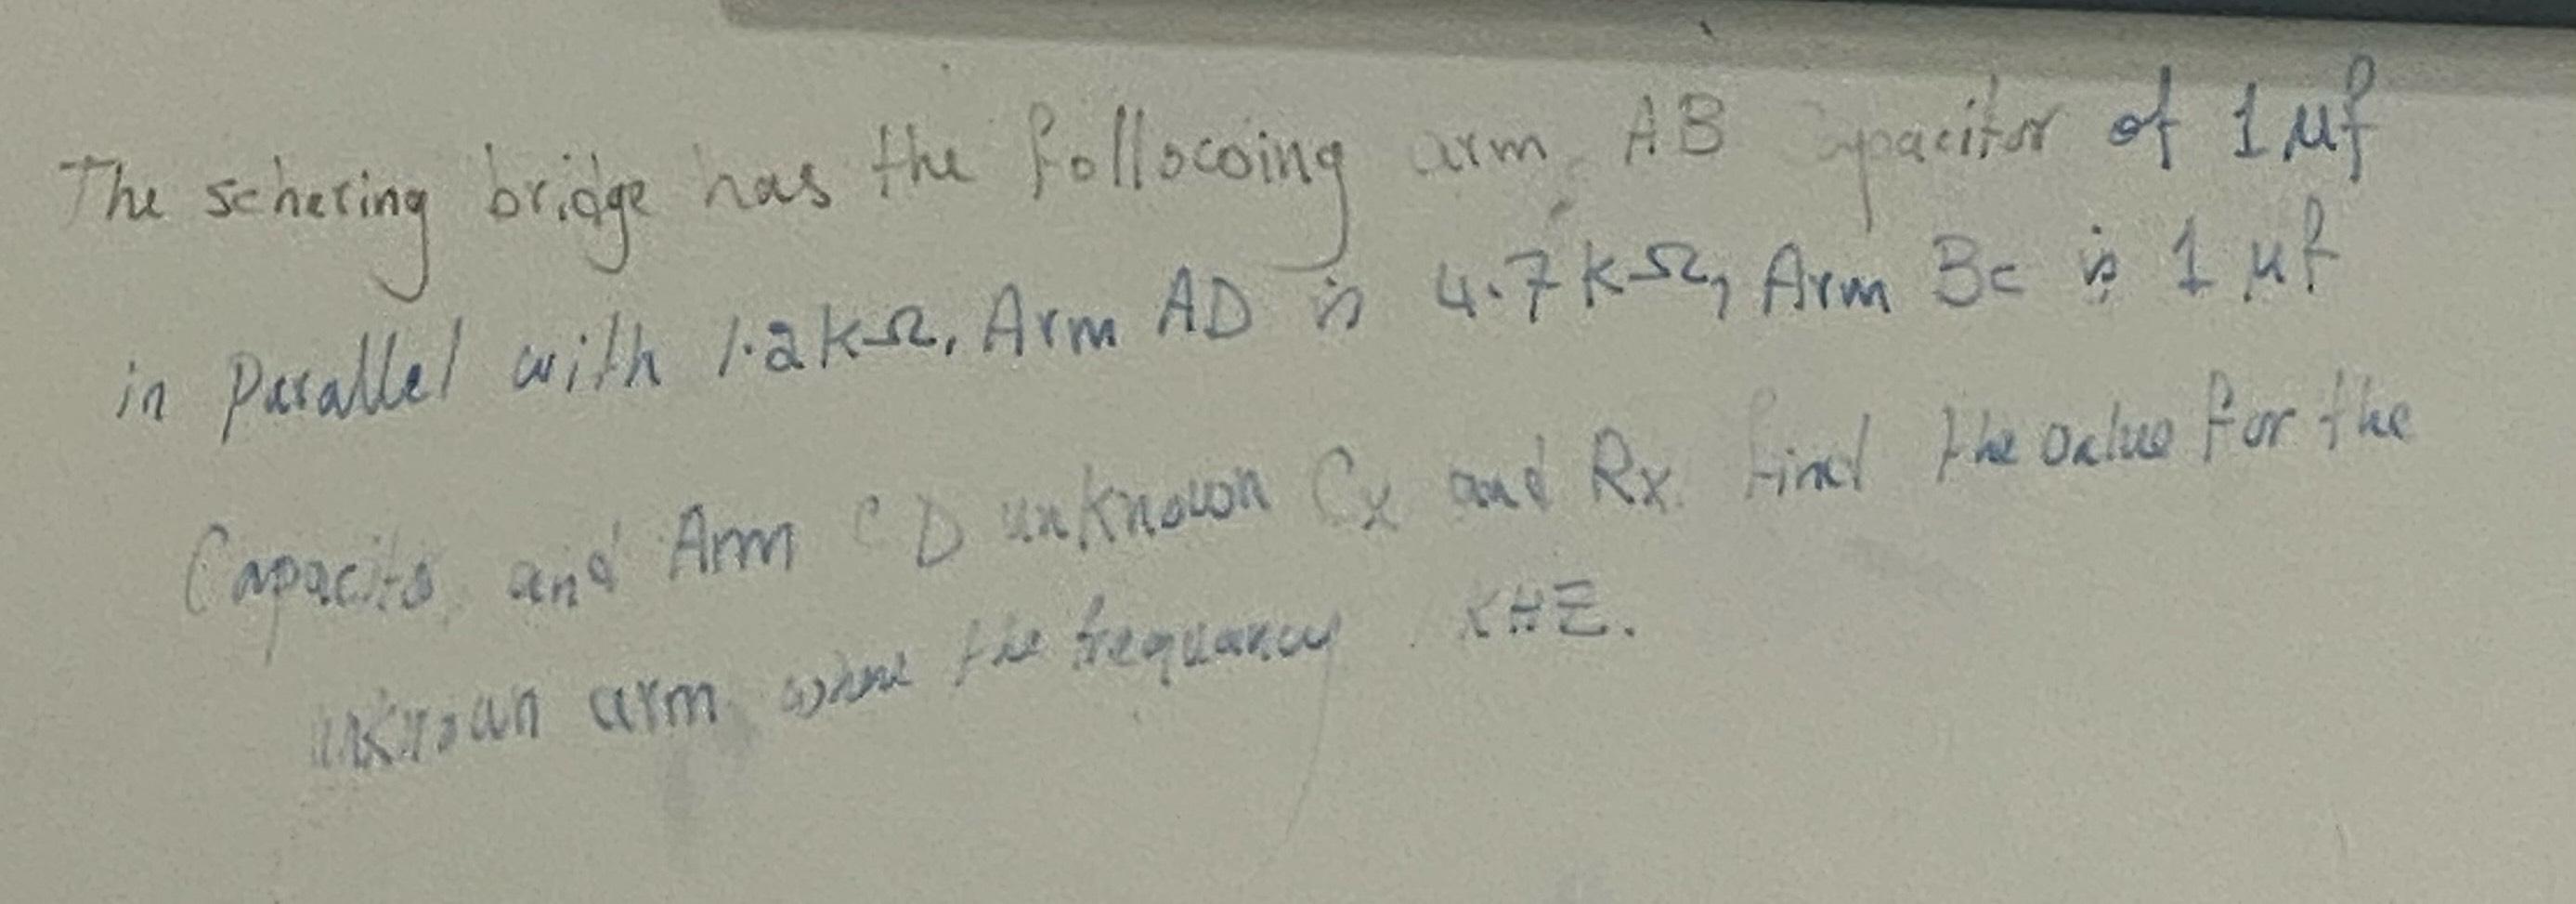 The schering bridge has the following arm AB Capacitor of 1 μf
in parallel with 1.2 kΩ, Arm AD is 4.7 kΩ, Arm Bc is 1 μf
Capacito and Arm CD unknown Cx and Rx. find the value for the
unknown arm where the frequancy KHZ.